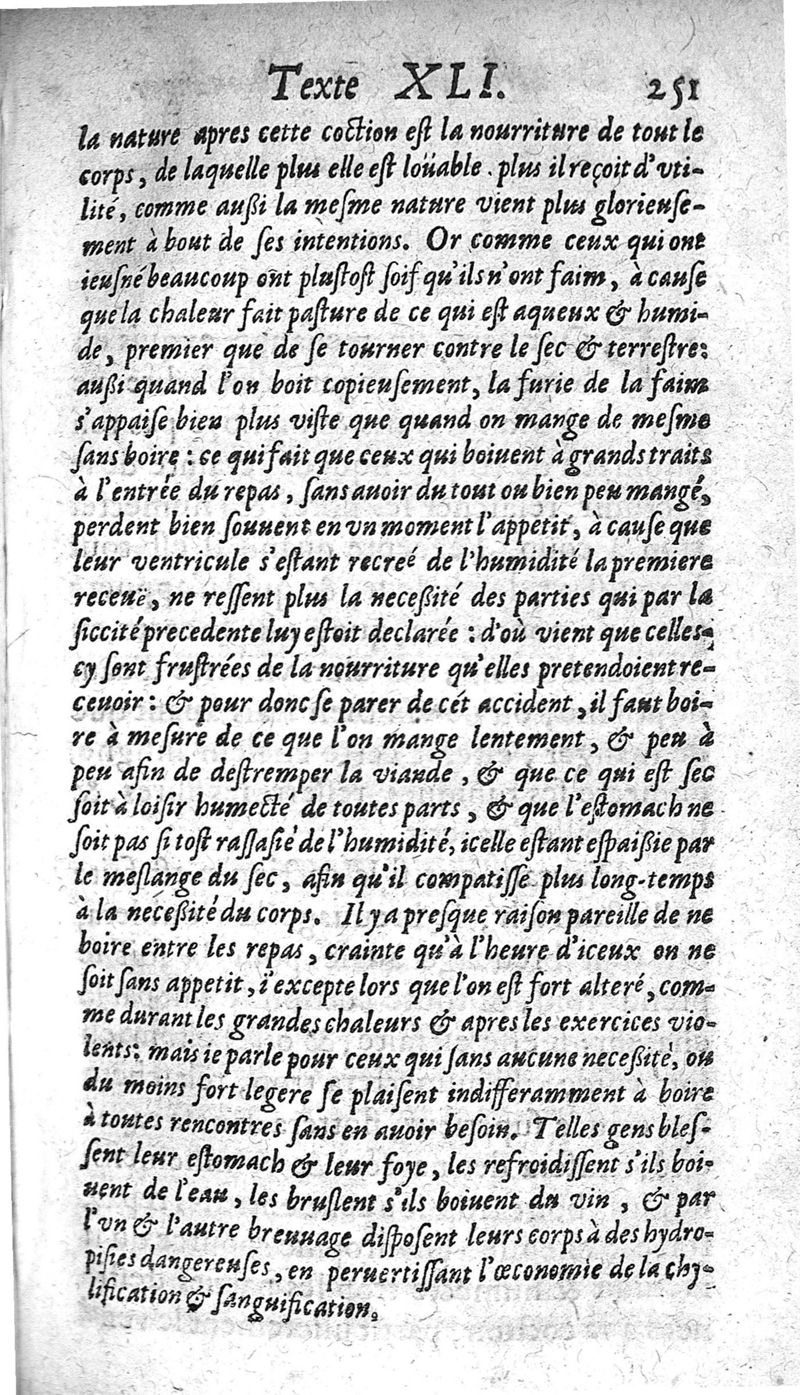 Texte XLI. 251
la nature apres cette coction eſt la nourriture de tout le
corps, de laquelle plus elle eſt loüable. plus il reçoit d'vti-
lité, comme außi la meſme nature vient plus glorieuſe-
ment à bout de ſes intentions. Or comme ceux qui ont
ieuſné beaucoup ont pluſtoſt ſoif qu'ils n'ont faim, à cauſe
que la chaleur fait paſture de ce qui eſt aqueux & humi-
de, premier que de ſe tourner contre le ſec & terreſtre:
außi quand l'on boit copieuſement, la furie de la faim
s'appaiſe bien plus viſte que quand on mange de meſme
ſans boire : ce qui fait que ceux qui boiuent à grands traits
à l'entrée du repas, ſans auoir du tout ou bien peu mangé,
perdent bien ſouuent en vn moment l'appetit, à cauſe que
leur ventricule s'eſtant recreé de l'humidité la premiere
receuë, ne reſſent plus la neceßité des parties qui par la
ſiccité precedente luy eſtoit declarée : d'où vient que celles-
cy ſont fruſtrées de la nourriture qu'elles pretendoient re-
ceuoir : & pour donc ſe parer de cét accident, il faut boi-
re à meſure de ce que l'on mange lentement, & peu à
peu afin de deſtremper la viande, & que ce qui eſt ſec
ſoit à loiſir humecté de toutes parts, & que l'eſtomach ne
ſoit pas ſi toſt raſſaſié de l'humidité, icelle eſtant eſpaißie par
le meſlange du ſec, afin qu'il compatiſſe plus long-temps
à la neceßité du corps. Il y a preſque raiſon pareille de ne
boire entre les repas, crainte qu'à l'heure d'iceux on ne
ſoit ſans appetit, i'excepte lors que l'on eſt fort alteré, com-
me durant les grandes chaleurs & apres les exercices vio-
lents: mais ie parle pour ceux qui ſans aucune neceßité, ou
du moins fort legere ſe plaiſent indifferamment à boire
à toutes rencontres ſans en auoir beſoin. Telles gens bleſ-
ſent leur eſtomach & leur foye, les refroidiſſent s'ils boi-
uent de l'eau, les bruſlent s'ils boiuent du vin, & par
l'vn & l'autre breuuage diſpoſent leurs corps à des hydro-
piſies dangereuſes, en peruertiſſant l'œconomie de la chy-
lification & ſanguification.